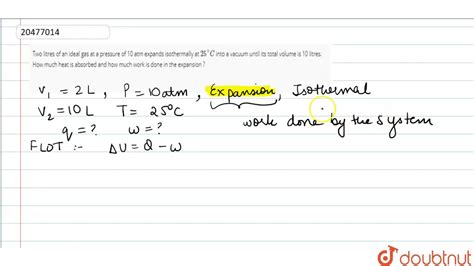 20477014
Two litres of an ideal gas at a pressure of 10 atm expands isothermally at 25°C into a vacuum until its total volume is 10 litres.
How much heat is absorbed and how much work is done in the expansion ?
V₁ = 2L , P = 10 atm , Expansion , Isothermal
V₂ = 10 L T = 25°C
work done by the system
q = ? w = ?
FLOT :- ΔU = Q - W
doubtnut